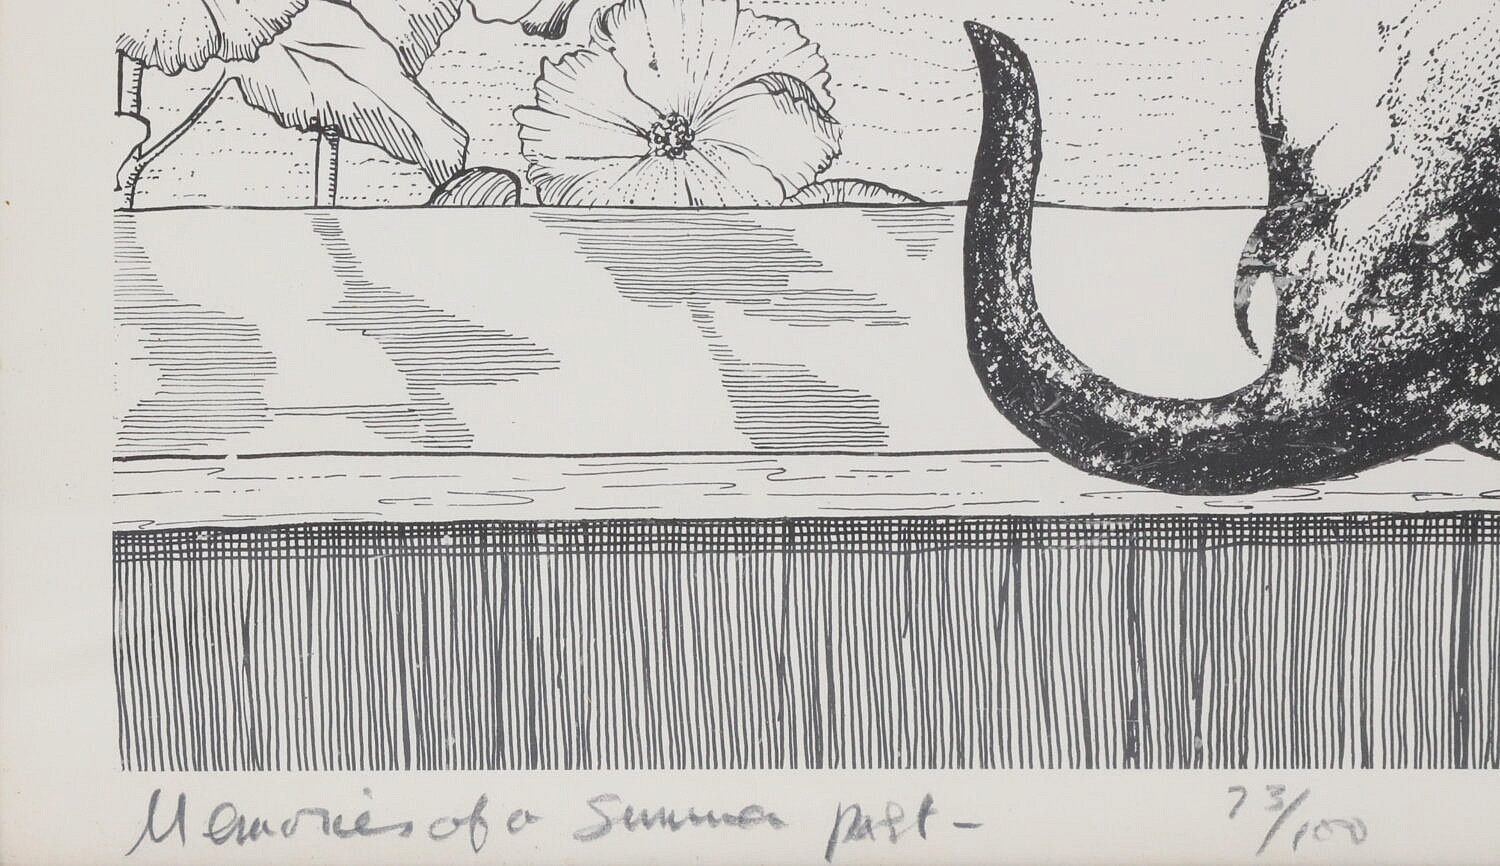 Memories of a Summer past – 73/100